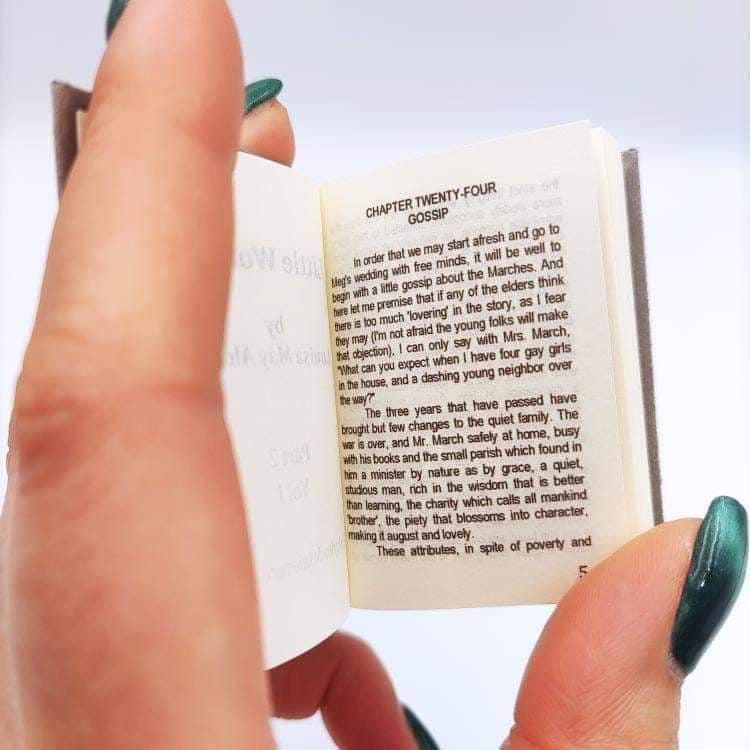 CHAPTER TWENTY-FOUR
GOSSIP
In order that we may start afresh and go to
Meg's wedding with free minds, it will be well to
begin with a little gossip about the Marches. And
here let me premise that if any of the elders think
there is too much 'lovering' in the story, as I fear
they may (I'm not afraid the young folks will make
that objection), I can only say with Mrs. March,
"What can you expect when I have four gay girls
in the house, and a dashing young neighbor over
the way?"
The three years that have passed have
brought but few changes to the quiet family. The
war is over, and Mr. March safely at home, busy
with his books and the small parish which found in
him a minister by nature as by grace, a quiet,
studious man, rich in the wisdom that is better
than learning, the charity which calls all mankind
'brother', the piety that blossoms into character,
making it august and lovely.
These attributes, in spite of poverty and
5